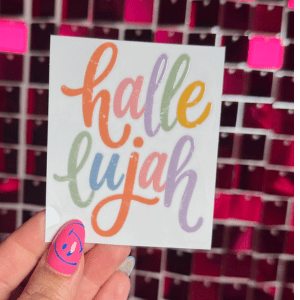 halle
lujah